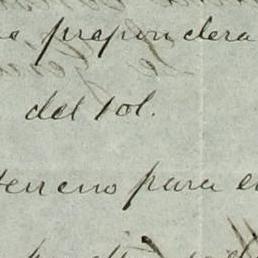 prepondera
del sol.
terreno para e